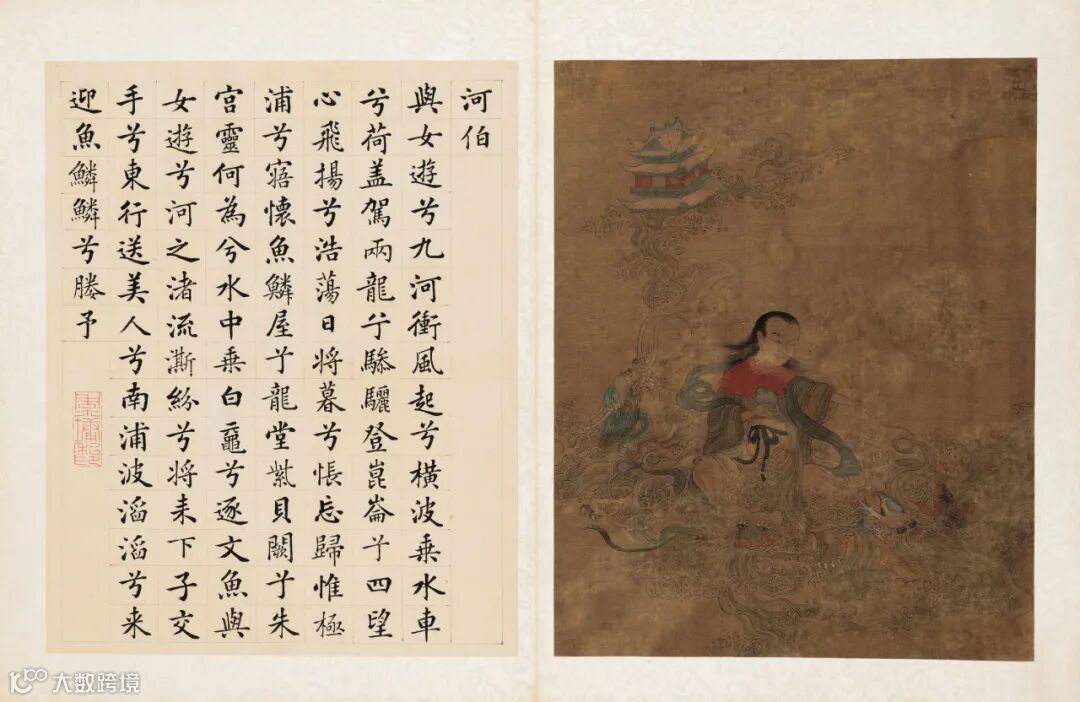 河伯
與女遊兮九河衝風起兮橫波乗水車
兮荷盖駕兩龍兮驂驪登崑崙兮四望
心飛揚兮浩蕩日将暮兮悵忘歸惟極
浦兮寤懷魚鱗屋兮龍堂紫貝闕兮朱
宮靈何為兮水中乗白黿兮逐文魚與
女遊兮河之渚流澌紛兮将来下子交
手兮東行送美人兮南浦波滔滔兮来
迎魚鱗鱗兮媵予
大数跨境